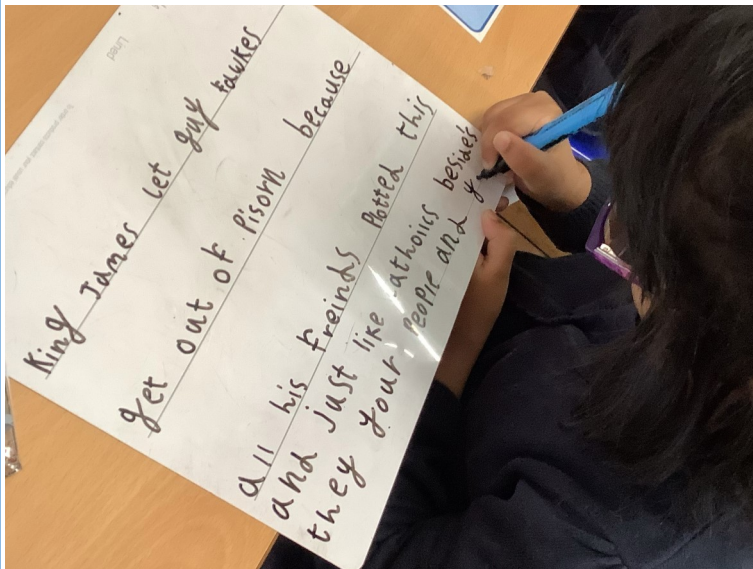 King James let guy fawkes
get out of Pisorn because
all his freinds Plotted this
and just like catholics besides
they your people and y
Lined